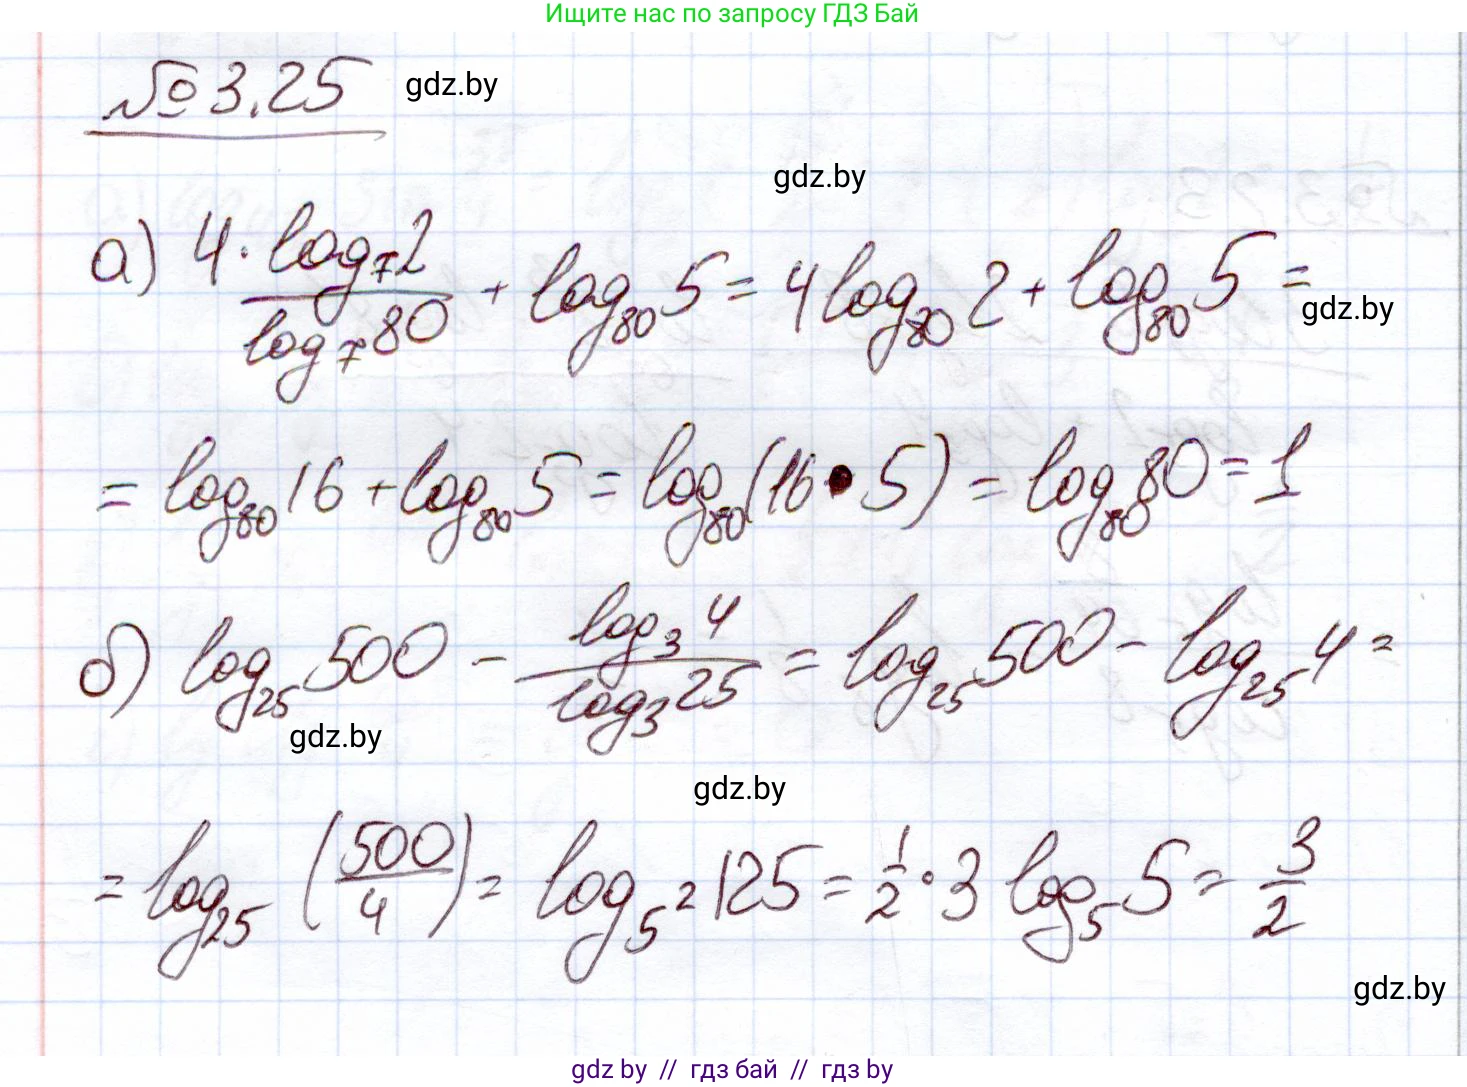 Ищите нас по запросу ГДЗ Бай
№ 3.25
gdz.by
gdz.by
а) 4 · log₇2 / log₇80 + log₈₀5 = 4 log₈₀2 + log₈₀5 =
gdz.by
= log₈₀16 + log₈₀5 = log₈₀(16 • 5) = log₈₀80 = 1
б) log₂₅500 − log₃4 / log₃25 = log₂₅500 − log₂₅4 =
gdz.by
gdz.by
= log₂₅ (500/4) = log₅² 125 = 1/2 · 3 log₅5 = 3/2
gdz.by
gdz by // гдз бай // гдз by